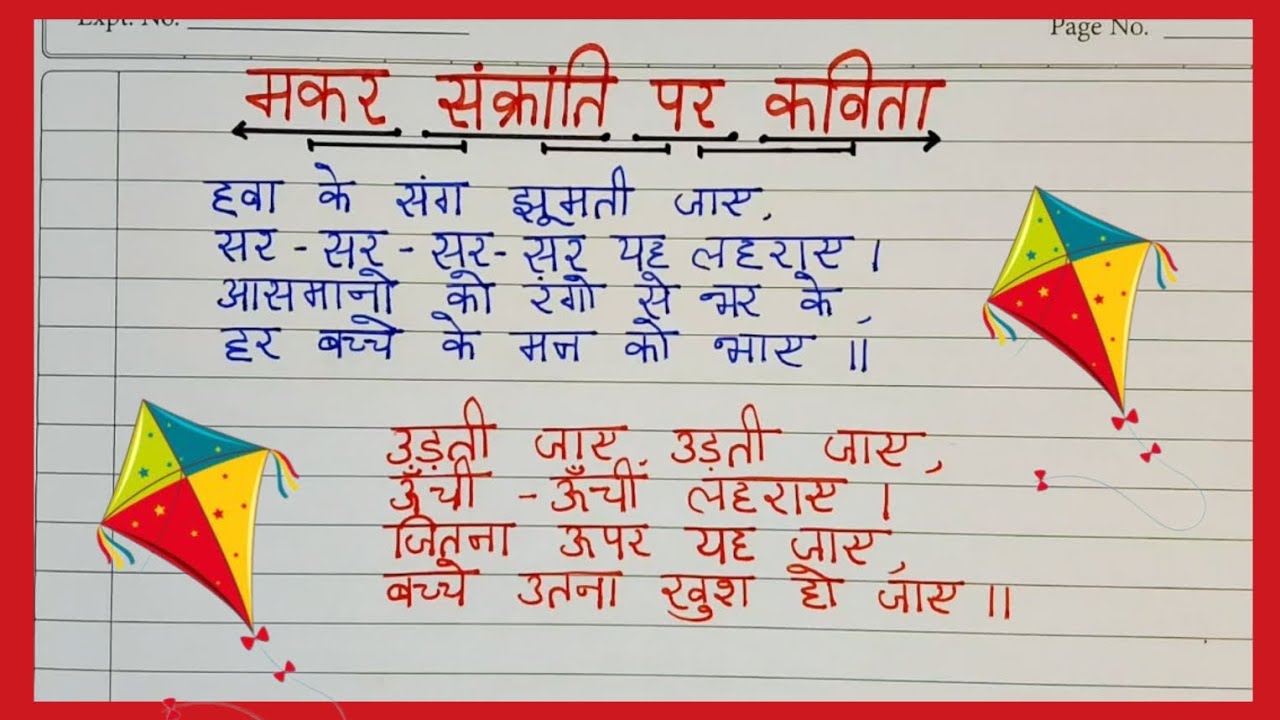 Expt. No.
Page No.
मकर संक्रांति पर कविता
हवा के संग झूमती जाए,
सर - सर - सर - सर यह लहराए ।
आसमानो को रंगो से भर के,
हर बच्चे के मन को भाए ॥
उड़ती जाए, उड़ती जाए,
ऊँची - ऊँची लहराए ।
जितना ऊपर यह जाए,
बच्चे उतना खुश हो जाए ॥